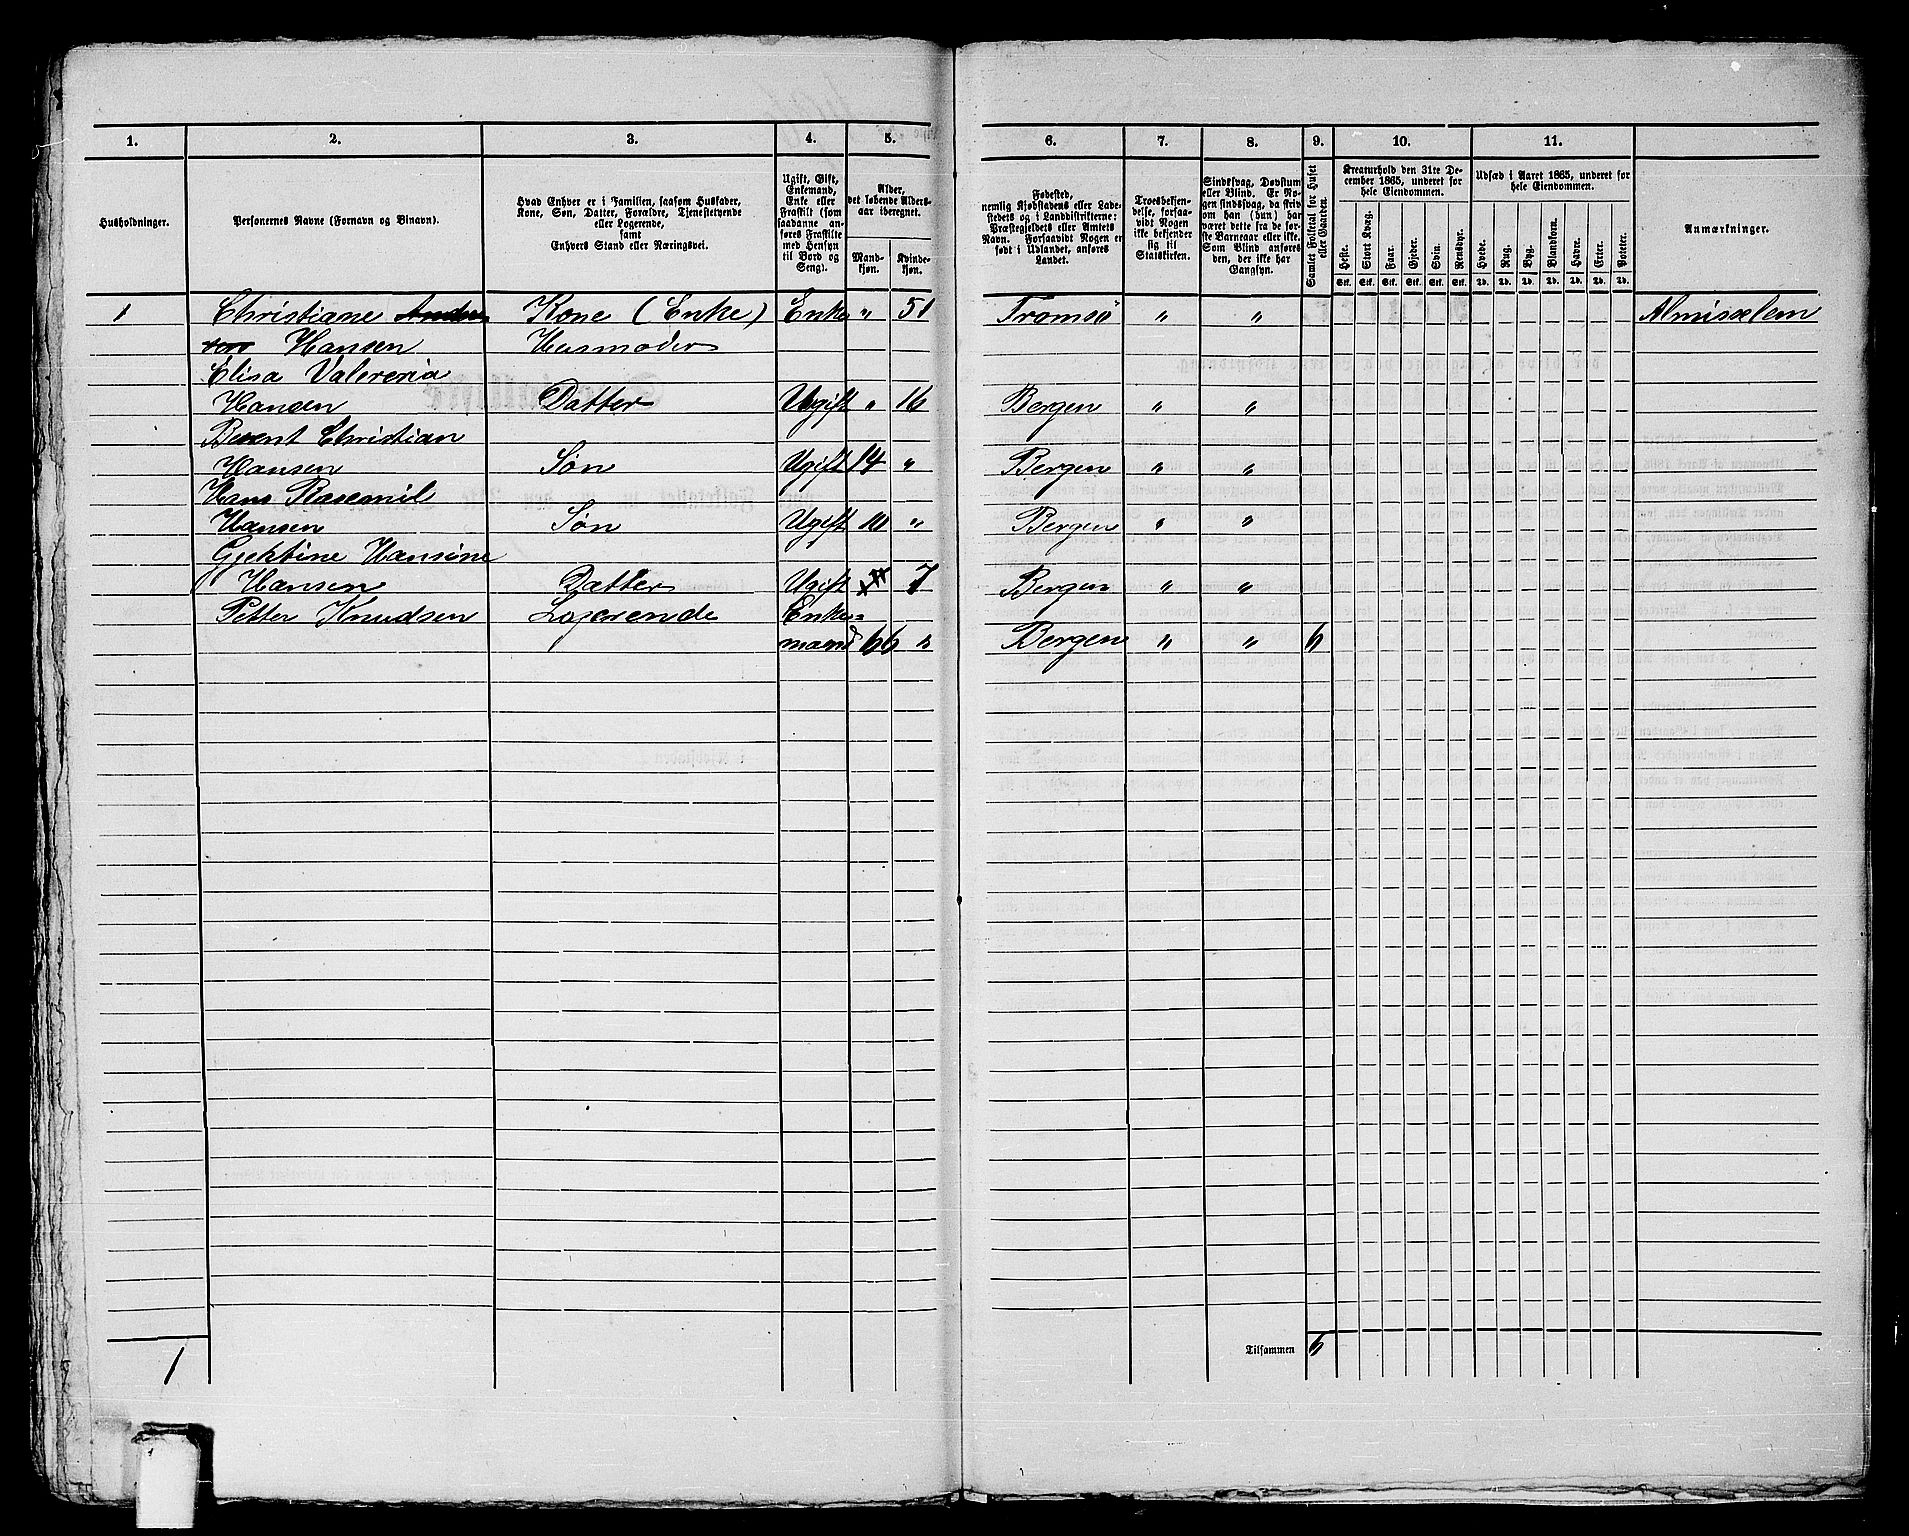 1. 2. 3. 4. 5. 6. 7. 8. 9. 10. 11.
Husholdninger.
Personernes Navne (Fornavn og Binavn).
Hvad Enhver er i Familien, saasom Husfader, Kone, Søn, Datter, Forældre, Tjenestetyende eller Logerende, samt Enhvers Stand eller Næringsvei.
Ugift, Gift, Enkemand, Enke eller Fraskilt (som saadanne anføres Fraskilte med Hensyn til Bord og Seng).
Alder, det løbende Alders-aar iberegnet.
Mand-kjøn. Kvinde-kjøn.
Fødested, nemlig Kjøbstadens eller Ladestedets og i Landdistrikterne: Præstegjeldets eller Amtets Navn. Forsaavidt Nogen er født i Udlandet, anføres Landet.
Troesbekjendelse, forsaavidt Nogen ikke bekjender sig til Statskirken.
Sindssvag, Døvstum eller Blind. Er Nogen sindssvag, da skriv om han (hun) har været dette fra de første Barneaar eller ikke. Som Blind anføres den, der ikke har Gangsyn.
Samlet Folketal for Huset eller Gaarden.
Kreaturhold den 31te December 1865, underet for hele Eiendommen.
Heste. Stort Kvæg. Faar. Gjeder. Svin. Rensdyr.
Stk. Stk. Stk. Stk. Stk. Stk.
Udsæd i Aaret 1865, underet for hele Eiendommen.
Hvede. Rug. Byg. Blandkorn. Havre. Erter. Poteter.
Td. Td. Td. Td. Td. Td. Td.
Anmærkninger.
1 Christiane Kone (Enke) Enke " 51 Tromsø " " Almisselem
Hansen Husmoder
Elisa Valereria
Hansen Datter Ugift " 16 Bergen " "
Berent Christian
Hansen Søn Ugift 14 " Bergen " "
Hans
Hansen Søn Ugift 10 " Bergen " "
Gjektine Hansine
Hansen Datter Ugift 7 Bergen " "
Petter Knudsen Logerende Enke=
mand 66 " Bergen " " 6
Tilsammen 6
1